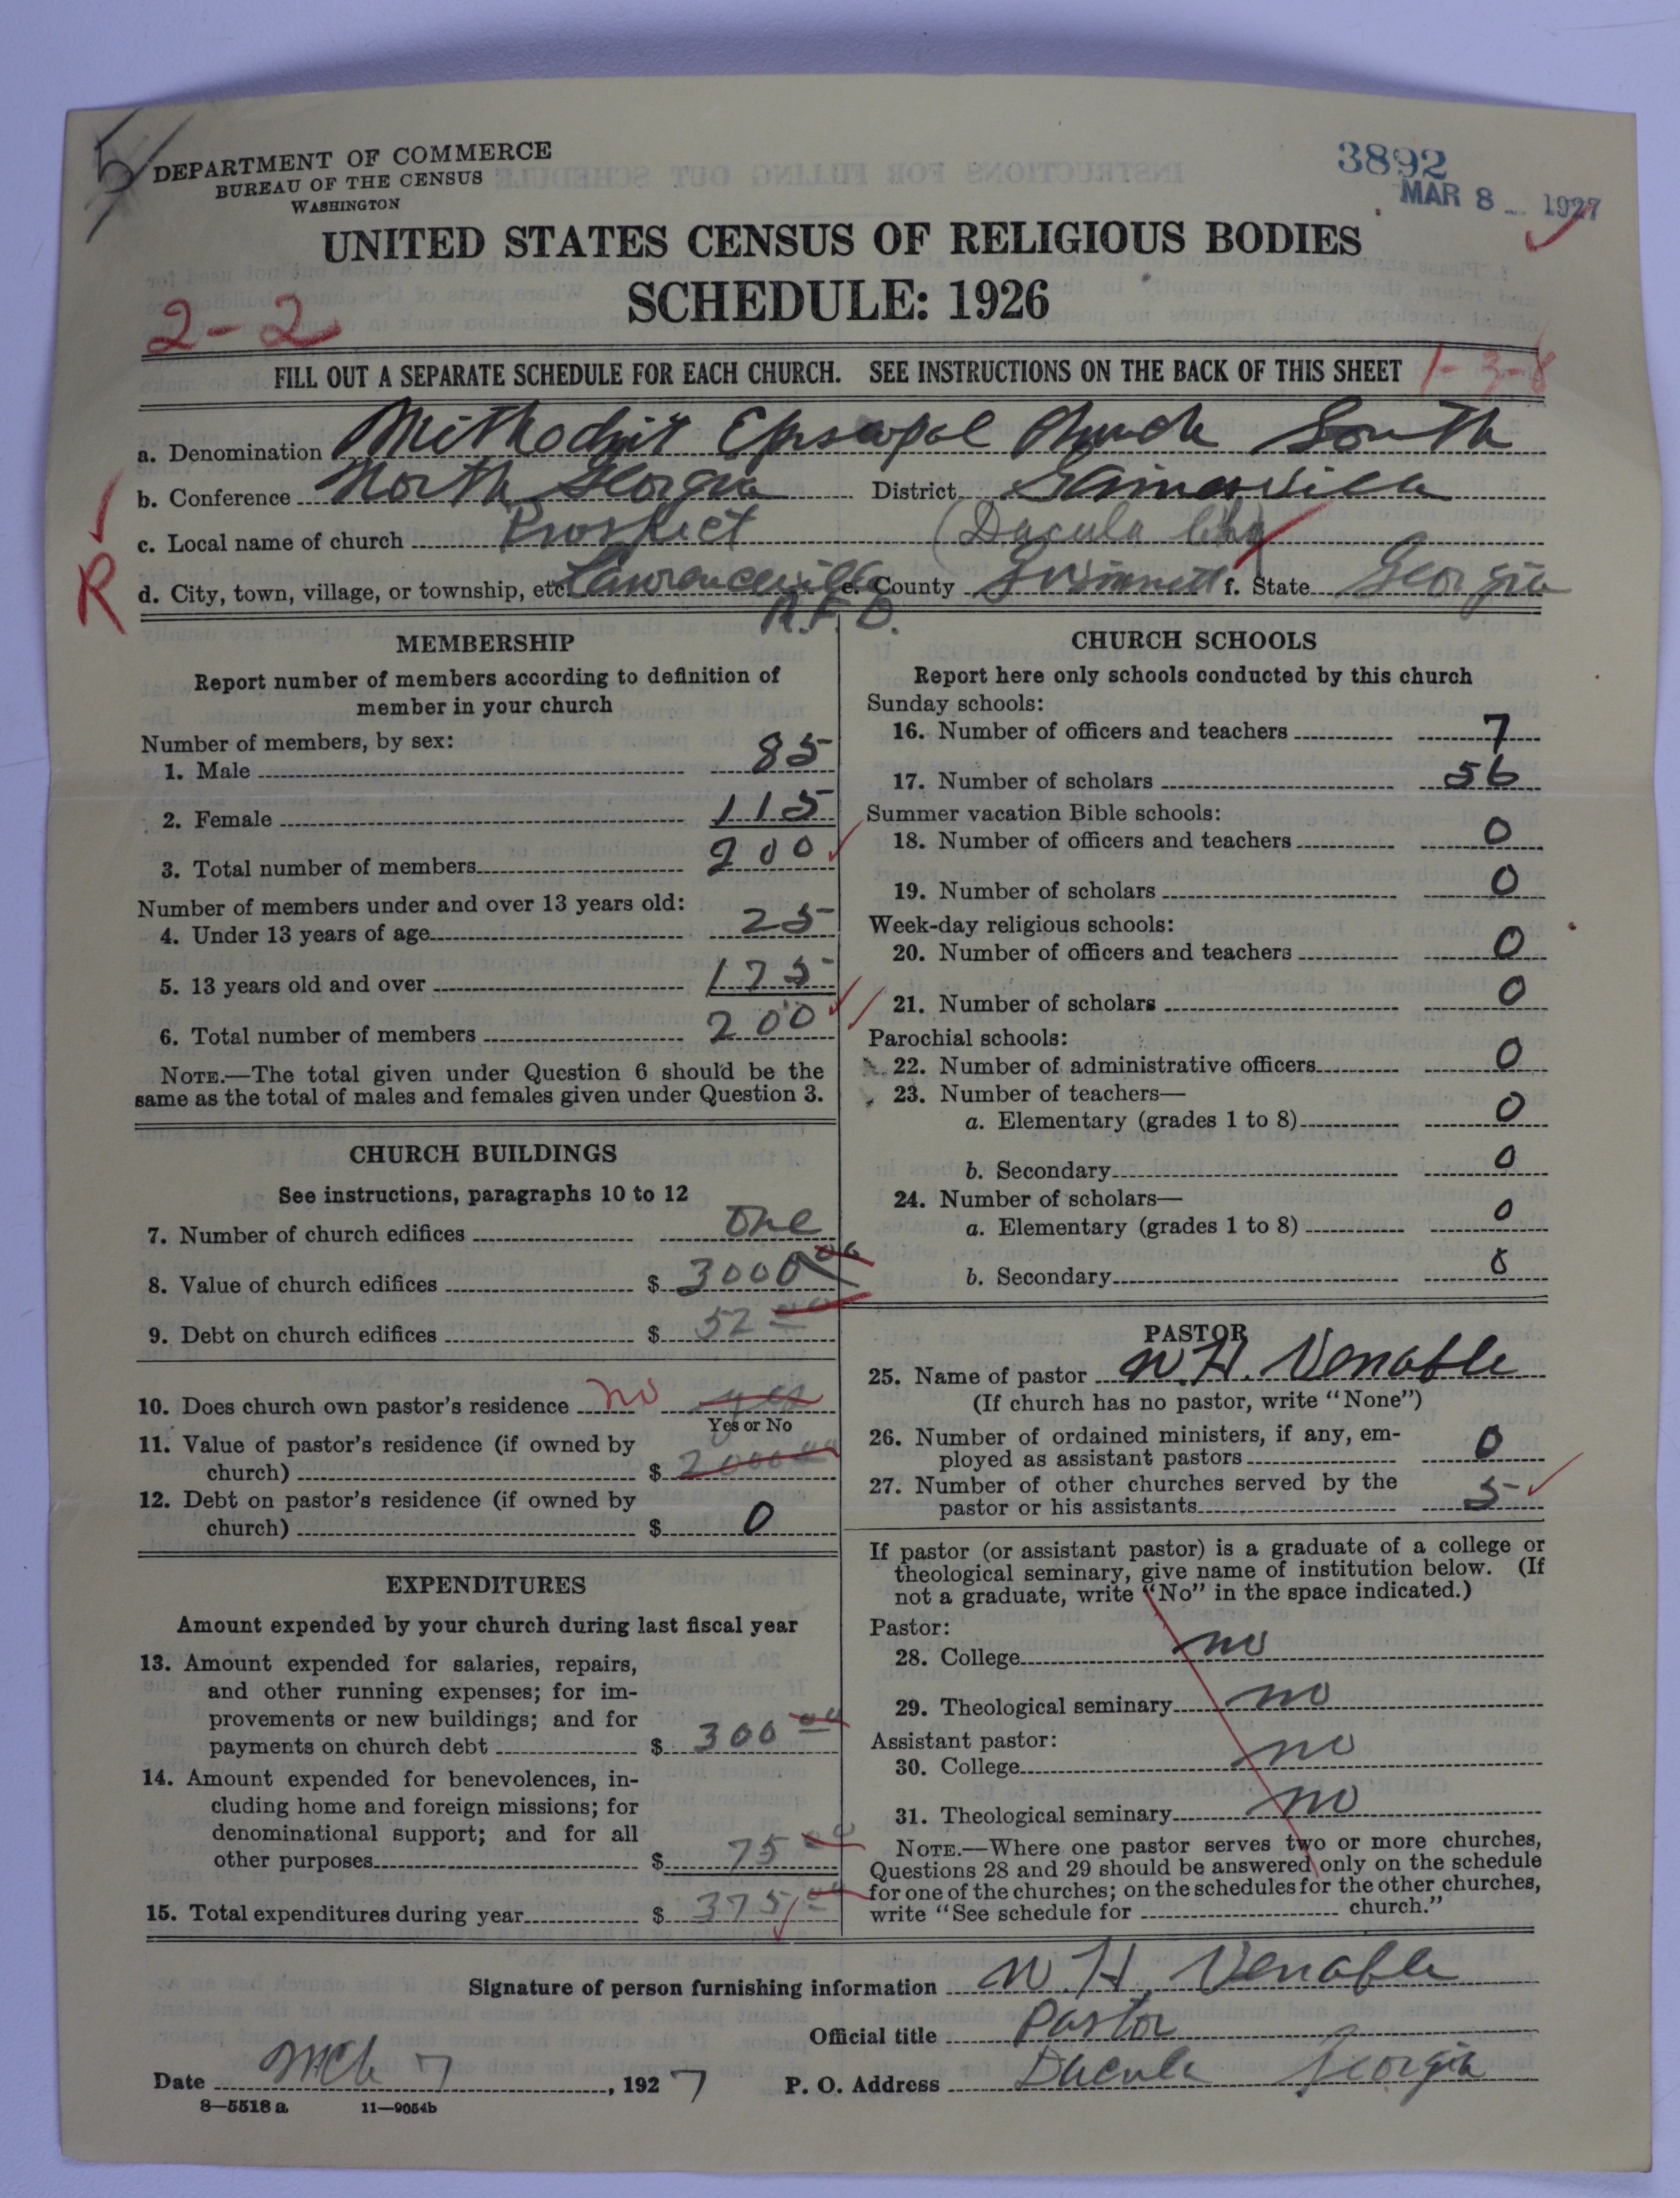 DEPARTMENT OF COMMERCE
BUREAU OF THE CENSUS
WASHINGTON
3892
MAR 8 1927
UNITED STATES CENSUS OF RELIGIOUS BODIES
SCHEDULE: 1926
2-2
FILL OUT A SEPARATE SCHEDULE FOR EACH CHURCH. SEE INSTRUCTIONS ON THE BACK OF THIS SHEET 1-3-8
a. Denomination Methodist Episcopal Church South
b. Conference North Georgia District Gainesville
c. Local name of church Prospect (Dacula Chg)
R
d. City, town, village, or township, etc. Lawrenceville e. County Gwinnett f. State Georgia
R.F.D.
MEMBERSHIP
Report number of members according to definition of
member in your church
Number of members, by sex:
1. Male 85
2. Female 115
3. Total number of members 200
Number of members under and over 13 years old:
4. Under 13 years of age 25
5. 13 years old and over 175
6. Total number of members 200
NOTE.—The total given under Question 6 should be the
same as the total of males and females given under Question 3.
CHURCH BUILDINGS
See instructions, paragraphs 10 to 12
7. Number of church edifices One
8. Value of church edifices $ 3000 00
9. Debt on church edifices $ 52 00
10. Does church own pastor's residence no yes
Yes or No
11. Value of pastor's residence (if owned by
church) $ 2000 00
12. Debt on pastor's residence (if owned by
church) $ 0
EXPENDITURES
Amount expended by your church during last fiscal year
13. Amount expended for salaries, repairs,
and other running expenses; for im-
provements or new buildings; and for
payments on church debt $ 300 00
14. Amount expended for benevolences, in-
cluding home and foreign missions; for
denominational support; and for all
other purposes $ 75 00
15. Total expenditures during year $ 375 00
CHURCH SCHOOLS
Report here only schools conducted by this church
Sunday schools:
16. Number of officers and teachers 7
17. Number of scholars 56
Summer vacation Bible schools:
18. Number of officers and teachers 0
19. Number of scholars 0
Week-day religious schools:
20. Number of officers and teachers 0
21. Number of scholars 0
Parochial schools:
22. Number of administrative officers 0
23. Number of teachers—
a. Elementary (grades 1 to 8) 0
b. Secondary 0
24. Number of scholars—
a. Elementary (grades 1 to 8) 0
b. Secondary 0
PASTOR
25. Name of pastor W. H. Venable
(If church has no pastor, write "None")
26. Number of ordained ministers, if any, em-
ployed as assistant pastors 0
27. Number of other churches served by the
pastor or his assistants 5
If pastor (or assistant pastor) is a graduate of a college or
theological seminary, give name of institution below. (If
not a graduate, write "No" in the space indicated.)
Pastor:
28. College no
29. Theological seminary no
Assistant pastor:
30. College no
31. Theological seminary no
NOTE.—Where one pastor serves two or more churches,
Questions 28 and 29 should be answered only on the schedule
for one of the churches; on the schedules for the other churches,
write "See schedule for church."
Signature of person furnishing information W. H. Venable
Official title Pastor
Date Mch 7, 1927 P. O. Address Dacula Georgia
8—5518 a 11—9054b